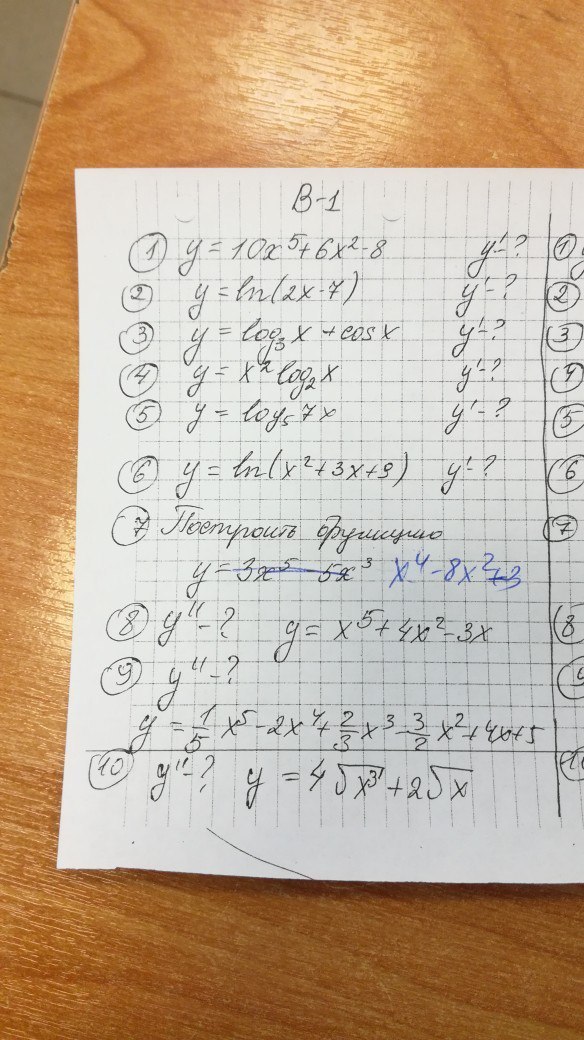 В-1
① y = 10x⁵+6x²-8 y'-?
② y = ln(2x-7) y'-?
③ y = log₃x + cosx y'-?
④ y = x² log₂x y'-?
⑤ y = log₅7x y'-?
⑥ y = ln(x²+3x+9) y'-?
⑦ Построить функцию
y = 3x⁵ - 5x³ x⁴-8x²+3
⑧ y''-? y = x⁵+4x²-3x
⑨ y''-?
y = 1/5 x⁵ - 2x⁴ + 2/3 x³ - 3/2 x² + 4x+5
⑩ y''-? y = 4√x³ + 2√x
① y
②
③
④
⑤
⑥
⑦
⑧
⑨
⑩